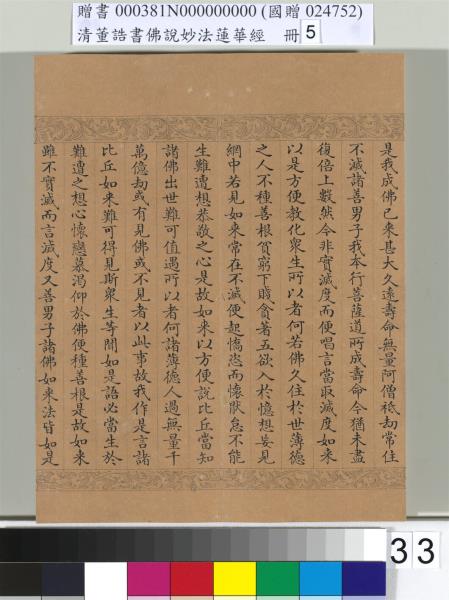 贈書 000381N000000000 (國贈 024752)
清董誥書佛說妙法蓮華經 冊 5
是我成佛已來甚大久遠壽命無量阿僧祇劫常住
不滅諸善男子我本行菩薩道所成壽命今猶未盡
復倍上數然今非實滅度而便唱言當取滅度如來
以是方便教化眾生所以者何若佛久住於世薄德
之人不種善根貧窮下賤貪著五欲入於憶想妄見
網中若見如來常在不滅便起憍恣而懷厭怠不能
生難遭想恭敬之心是故如來以方便說比丘當知
諸佛出世難可值遇所以者何諸薄德人過無量千
萬億劫或有見佛或不見者以此事故我作是言諸
比丘如來難可得見斯眾生等聞如是語必當生於
難遭之想心懷戀慕渴仰於佛便種善根是故如來
雖不實滅而言滅度又善男子諸佛如來法皆如是
33